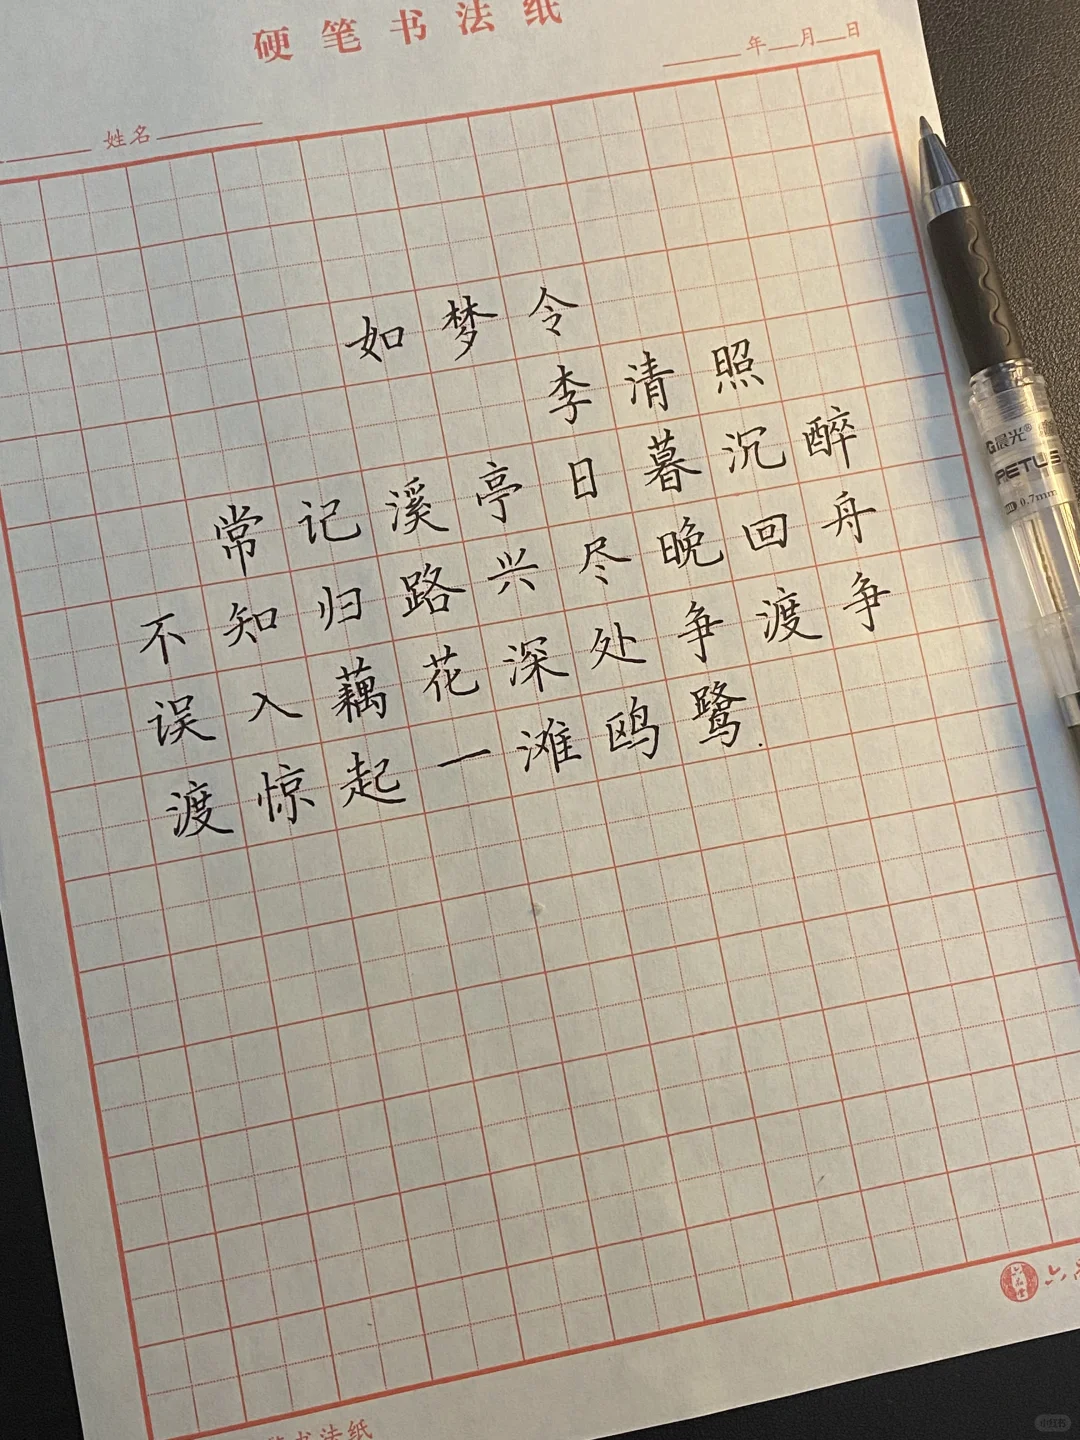 硬笔书法纸
年 月 日
姓名
如梦令
李清照
常记溪亭日暮沉醉
不知归路兴尽晚回舟
误入藕花深处争渡争
渡惊起一滩鸥鹭.
G晨光®
0.7mm
六品堂
六
笔书法纸
小红书